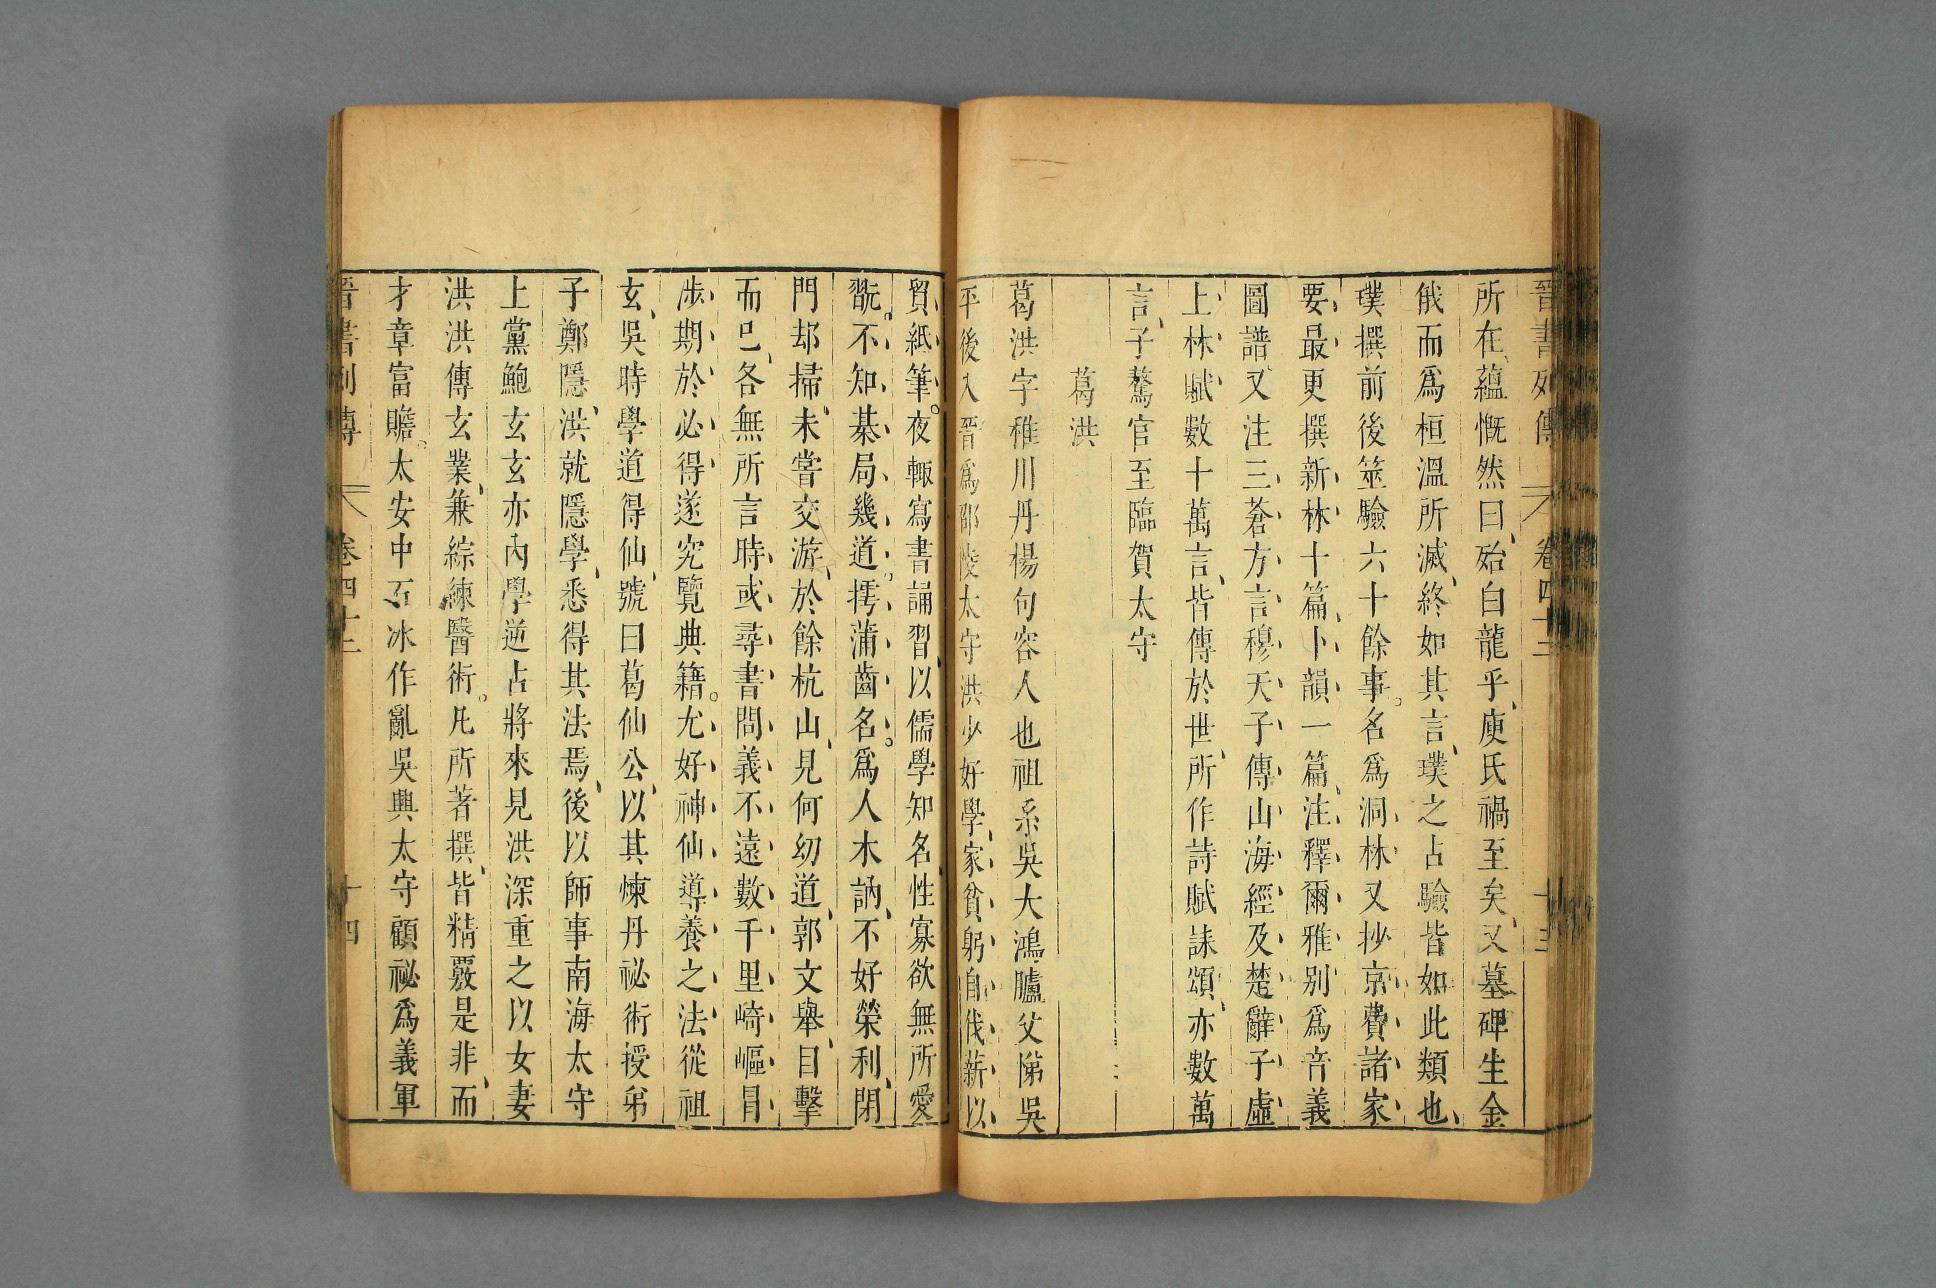 晉書列傳 卷四十二 十三
所在蘊慨然曰殆白龍乎庾氏禍至矣又墓碑生金
俄而爲桓溫所滅終如其言璞之占驗皆如此類也
璞撰前後筮驗六十餘事名爲洞林又抄京費諸家
要最更撰新林十篇卜韻一篇注釋爾雅别爲音義
圖譜又注三蒼方言穆天子傳山海經及楚辭子虛
上林賦數十萬言皆傳於世所作詩賦誄頌亦數萬
言子驁官至臨賀太守
葛洪
葛洪字稚川丹楊句容人也祖系吳大鴻臚父悌吳
平後入晉爲邵陵太守洪少好學家貧躬自伐薪以
貿紙筆夜輒寫書誦習以儒學知名性寡欲無所愛
翫不知棊局幾道摴蒲齒名爲人木訥不好榮利閉
門却掃未甞交游於餘杭山見何幼道郭文舉目擊
而已各無所言時或尋書問義不遠數千里崎嶇冒
涉期於必得遂究覽典籍尤好神仙導養之法從祖
玄吳時學道得仙號曰葛仙公以其煉丹祕術授弟
子鄭隱洪就隱學悉得其法焉後以師事南海太守
上黨鮑玄玄亦內學逆占將來見洪深重之以女妻
洪洪傳玄業兼綜練醫術凡所著撰皆精覈是非而
才章富贍太安中石冰作亂吳興太守顧祕爲義軍
晉書列傳 卷四十二 十四